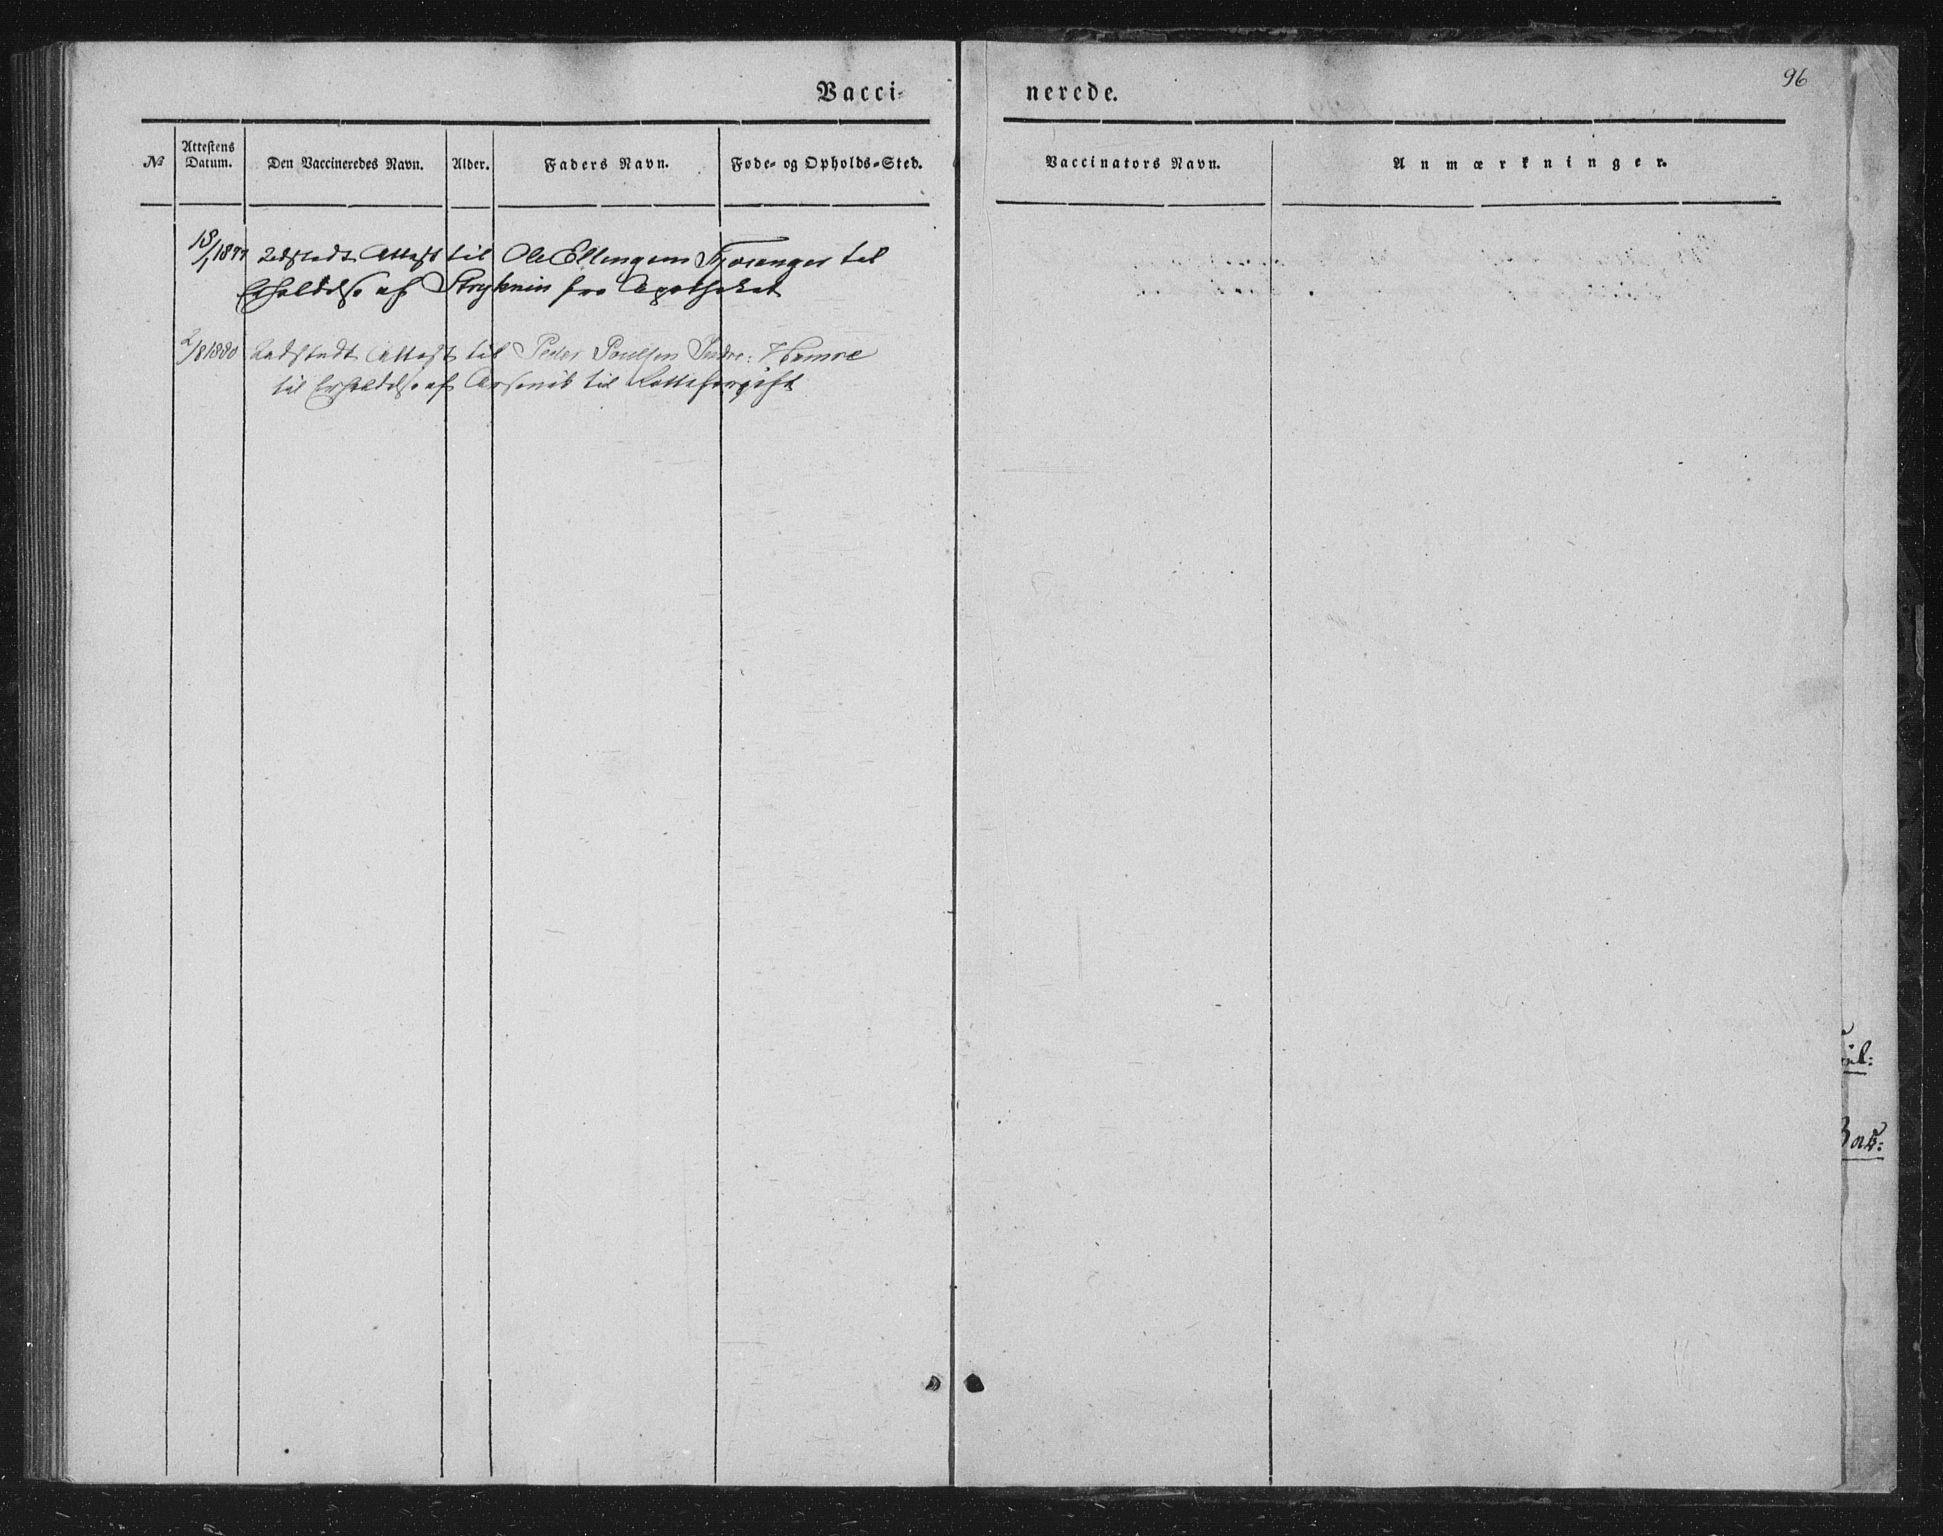 Vacci-nerede.
96
No
Attestens Datum.
Den Vaccineredes Navn.
Alder.
Faders Navn.
Føde- og Opholds-Sted.
Vaccinators Navn.
Anmærkninger.
18/1 1877 Udstedt Attest til Ole Ellingsen Tjosanger til
Erholdelse af Stryknin fra Apotheket
2/8 1880 Udstedt Attest til Peder Poulsen Indre-Hamre
til Erholdelse af Arsenik til Rotteforgift